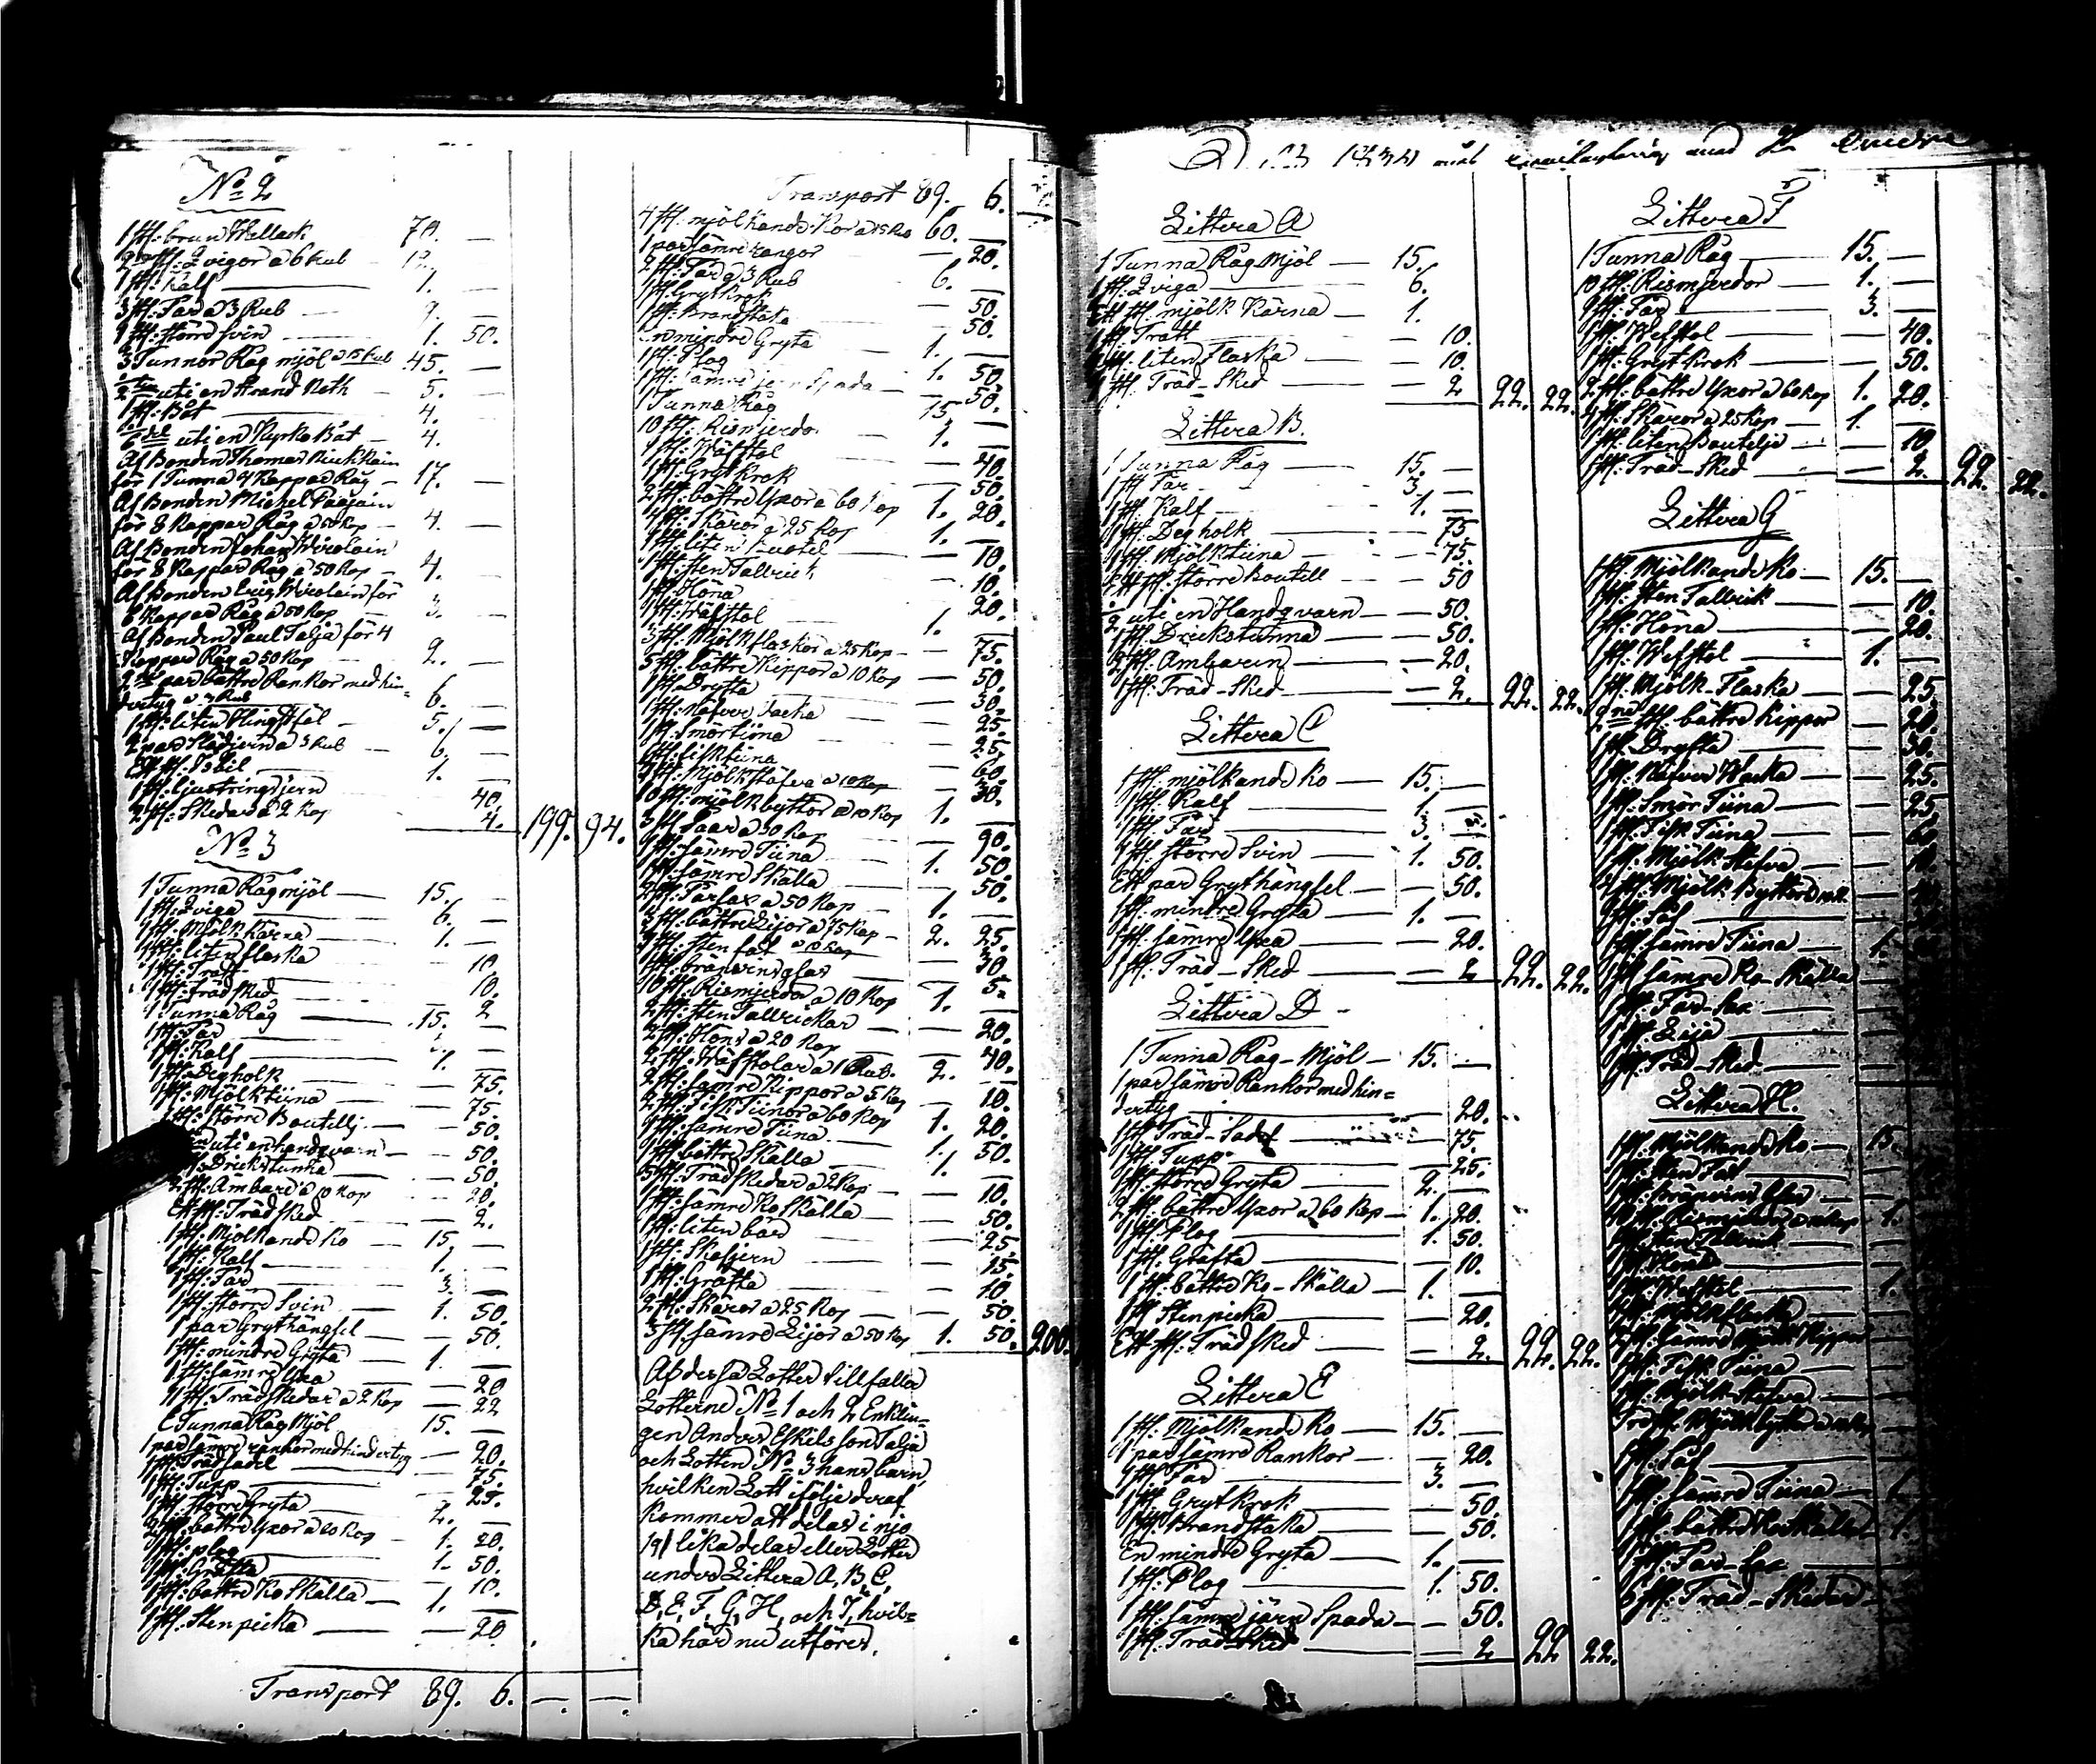 No 2
1 st: brun Wallack 70. —
2ne st: Qvigor a 6 Rub 12. —
1 st: Kalf — 1. —
3 st: Får a 3 Rub — 9. —
1 st: större svin — 1. 50.
3 Tunnor Råg mjöl a 15 Rub 45. —
uti en Strand Noth — 5. —
1 st: Båt — 4. —
uti en Kyrko Båt — 4. —
Af Bonden Thomas
för 1 Tunna 4 Kappar Råg — 17. —
Af Bonden Michel Paajain
för 8 Kappar Råg a 50 Kop — 4. —
Af Bonden Johan Wirolain
för 8 Kappar Råg a 50 Kop — 4. —
Af Bonden Erig Wirolain för
6 Kappar Råg a 50 Kop — 3. —
Af Bonden Paul Talja för 4
Kappar Råg a 50 Kop — 2. —
2ne par bättre Rankor med hin=
dertyg a 3 Rub — 6. —
1 st: liten Hingstföl — 5. —
2 par Slädjern a 3 Rub — 6. —
Ett st: Isbil — 1. —
1 st: ljustringsjern — 40.
2 st: Skedar a 2 Kop — 4. 199. 94.
No 3
1 Tunna Rågmjöl — 15. —
1 st: Qviga — 6. —
1 st: Mjölk Kärna — 1. —
1 st: liten flaska — 10
1 st: Tratt — 10.
1 st: Träd sked — 2
1 Tunna Råg — 15. —
1 st: Får — 3. —
1 st: Kalf — 1. —
1 st: Degholk — 75.
1 st: Mjölktiina — 75.
1 st: större Boutellj — 50.
uti en handqvarn — 50.
st: Drickstunna — 50.
2 st: Ambare a 10 Kop — 20.
Ett st: Träd sked — 2.
1 st: Mjölkande Ko — 15. —
1 st: Kalf — 1. —
1 st: Får — 3. —
1 st: större Svin — 1. 50.
1 par Grythängsel — 50.
1 st: mindre Gryta — 1. —
1 st: sämre Yxa — 20
11 st: Träd skedar a 2 Kop — 22
1 Tunna Råg Mjöl — 15. —
1 par sämre rankor med hindertyg — 20.
1 st: Träd sadel — 75
1 st: Tupp — 25.
1 st: större Gryta — 2. —
2 st: bättre Yxor a 60 Kop — 1. 20.
1 st: plog — 1. 50.
1 st: Gräfta — 10.
1 st: bättre Ko Skälla — 1. —
1 st: Stenpicka — 20
Transport 89. 6. — —
Transport 89. 6.
4 st: mjölkande Kor a 15 Ro 60. —
1 par sämre rangor — 20.
2 st: Får a 3 Rub 6. —
1 st: Grytkrok — 50.
1 st: Brandstaka — 50.
En mindre Gryta — 1. —
1 st: Plog — 1. 50
1 st: sämre jern Spada — 50.
1 Tunna Råg 15 —
10 st: Rismjerdor 1. —
1 st: Wäfstol — 40.
1 st: Grytkrok — 50.
2 st: bättre Yxor a 60 Kop 1. 20.
4 st: Skäror a 25 Kop 1. —
1 st: liten — 10.
1 st: sten Tallrick — 10.
1 st: Höna — 20.
1 st: Wäfstol 1. —
3 st: Mjölkflaskor a 25 Kop — 75.
5 st: bättre Kippor a 10 Kop — 50.
1 st: Dryfta — 30.
1 st: Näfver — 25.
1 st: Smörtiina — 25.
1 st: fisktiina — 60.
3 st: Mjölkstäfva a 10 Kop — 30.
10 st: mjölk byttor a 10 Kop 1. —
3 st: Såar a 30 Kop — 90.
1 st: sämre Tiina — 1. 50.
1 st: sämre Skälla — 50.
2 st: Fårsax a 50 Kop — 1. —
3 st: bättre Lijor a 75 Kop — 2. 25.
st: sten fat a Kop — 30
1 st: bränvinsglas — 5.
10 st: Rismjerdor a 10 Kop 1. —
2 st: sten Tallrickar — 20.
2 st: Höns a 20 Kop — 40.
2 st: Wäfstolar a 1 Rub. 2. —
2 st: sämre Kippor a 5 Kop — 10.
2 st: Fisk Tiinor a 60 Kop 1. 20.
1 st: sämre Tiina 1. 50.
1 st: bättre Skälla — 1. —
5 st: Träd skedar a 2 Kop — 10.
1 st: sämre Ko skälla — 50.
1 st: liten bår — 25.
1 st: Skafjern — 15.
1 st: Gräfta — 10.
2 st: Skäror a 25 Kop — 50.
3 st: sämre Lijor a 50 Kop 1. 50. 200.
Af dessa Lotter tillfalla
Lotterne No 1 och 2 Enklin=
gen Anders Eskelsson Talja
och Lotten No 3 hans barn,
hvilken Lott i följe deraf
kommer att delas i nio
19/ lika delar eller Lotter
under Littera A, B C,
D, E, F, G, H, och I, hvil=
ka här nu utföres.
Littera A
1 Tunna Råg Mjöl — 15. —
1 st: Qviga — 6. —
Ett st: mjölk Kärna — 1. —
1 st: Tratt — 10.
1 st: liten Flaska — 10.
1 st: Träd-Sked — 2 22. 22.
Littera B.
1 Tunna Råg — 15. —
1 st: Får — 3. —
1 st: Kalf — 1. —
1 st: Degholk — 75
1 st: Mjölktiina — 75.
Ett st: större Boutell — 50
1/2 uti en Handqvarn — 50.
1 st: Drickstunna — 50.
2 st: Ambaren — 20.
1 st: Träd-Sked — 2. 22. 22.
Littera C
1 st: mjölkande Ko — 15. —
1 st: Kalf — 1. —
1 st: Får — 3. —
1 st: större Svin — 1. 50.
Ett par Grythängsel — 50.
1 st: mindre Gryta — 1. —
1 st: sämre Yxa — 20.
1 st: Träd-Sked — 2 22. 22.
Littera D
1 Tunna Råg-Mjöl — 15. —
1 par sämre Rankor med hin=
dertyg — 20.
1 st: Träd-Sadel — 75.
1 st: Tupp — 25.
1 st: större Gryta — 2. —
2 st: bättre Yxor a 60 Kop — 1. 20.
1 st: Plog — 1. 50.
1 st: Gräfta — 10.
1 st: bättre Ko-Skälla — 1. —
1 st: Stenpicka — 20.
Ett st: Träd sked — 2. 22. 22.
Littera E
1 st: Mjölkande Ko — 15. —
1 par sämre Rankor — 20.
1 st: Får — 3. —
1 st: Grytkrok — 50.
1 st: Brandstaka — 50.
En mindre Gryta — 1. —
1 st: Plog — 1. 50.
1 st: sämre järn Spada — 50.
1 st: Träd-Sked — 2 22 22.
Littera F
1 Tunna Råg — 15. —
10 st: Rismjerdor — 1. —
1 st: Får — 3. —
1 st: Wefstol — 40.
1 st: Grytkrok — 50.
2 st: bättre Yxor a 60 Kop 1. 20.
4 st: Skäror a 25 Kop — 1. —
1 st: liten Boutelje — 10
1 st: Träd-Sked — 2. 22. 22.
Littera G
1 st: Mjölkande Ko — 15. —
1 st: Sten Tallrik — 10.
1 st: Höna — 20.
1 st: Wefstol — 1. —
1 st: Mjölk-Flaska — 25.
2ne st: bättre Kippor — 20.
1 st: Dryfta — 30.
1 st: Näfver — 25.
1 st: Smör Tiina — 25
1 st: Fisk Tiina — 60.
1 st: Mjölk Stäfva — 10.
st: Mjölk Byttor
1 st: Så
1 st: sämre Tiina — 1.
1 st: sämre Ko-Skälla
1 st: Får-Sax
1 st: Lija
1 st: Träd-Sked
Littera H.
1 st: Mjölkande Ko — 15.
1 st: Sten Fat
1 st: bränvins Glas
10 st: Rismjerdor 1.
1 st: Sten Tallrik
1 st: Höna
1 st: Wefstol — 1.
1 st: Mjölkflaska
1 st: Fisk Tiina
1 st: Mjölk Stäfva
1 st: Så
1 st: sämre Tiina
1 st: bättre Ko Skälla
1 st: Får Sax
st: Träd-Skedar